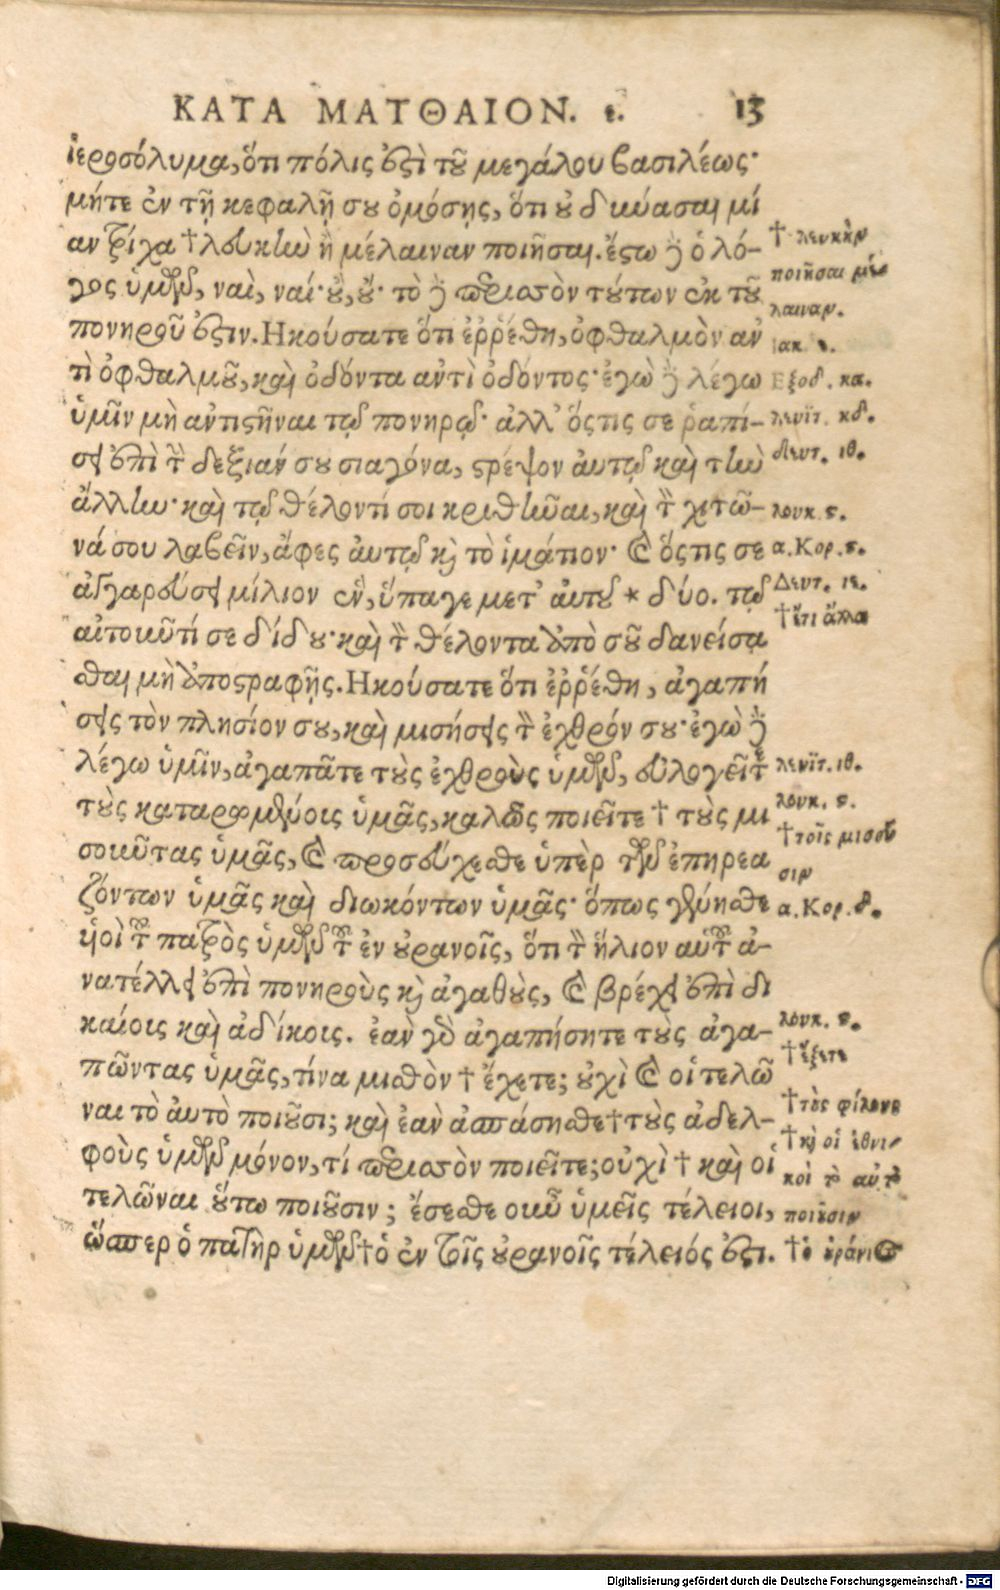 ΚΑΤΑ ΜΑΤΘΑΙΟΝ. ε. 13
ἱεροσόλυμα, ὅτι πόλις ἐστὶ τοῦ μεγάλου βασιλέως·
μήτε ἐν τῇ κεφαλῇ σου ὀμόσῃς, ὅτι οὐ δύνασαι μί
αν τρίχα † λευκὴν ἢ μέλαιναν ποιῆσαι. ἔστω δὲ ὁ λό-
γος ὑμῶν, ναὶ, ναί· οὒ, οὔ· τὸ δὲ περισσὸν τούτων ἐκ τοῦ
πονηροῦ ἐστιν. Ηκούσατε ὅτι ἐῤῥέθη, ὀφθαλμὸν ἀν
τὶ ὀφθαλμοῦ, καὶ ὀδόντα ἀντὶ ὀδόντος· ἐγὼ δὲ λέγω
ὑμῖν μὴ ἀντιστῆναι τῷ πονηρῷ· ἀλλ' ὅστις σε ῥαπί-
σει ἐπὶ τὴν δεξιάν σου σιαγόνα, στρέψον αὐτῷ καὶ τὴν
ἄλλην· καὶ τῷ θέλοντί σοι κριθῆναι, καὶ τὸν χιτῶ-
νά σου λαβεῖν, ἄφες αὐτῷ καὶ τὸ ἱμάτιον· καὶ ὅστις σε
ἀγγαρεύσει μίλιον ἓν, ὕπαγε μετ' αὐτοῦ * δύο. τῷ
αἰτοῦντί σε δίδου· καὶ τὸν θέλοντα ἀπὸ σοῦ δανείσα
σθαι μὴ ἀποστραφῇς. Ηκούσατε ὅτι ἐῤῥέθη, ἀγαπή
σεις τὸν πλησίον σου, καὶ μισήσεις τὸν ἐχθρόν σου· ἐγὼ δὲ
λέγω ὑμῖν, ἀγαπᾶτε τοὺς ἐχθροὺς ὑμῶν, εὐλογεῖτε
τοὺς καταρωμένοις ὑμᾶς, καλῶς ποιεῖτε † τοὺς μι
σοῦντας ὑμᾶς, καὶ προσεύχεσθε ὑπὲρ τῶν ἐπηρεα
ζόντων ὑμᾶς καὶ διωκόντων ὑμᾶς· ὅπως γένησθε
υἱοὶ τοῦ πατρὸς ὑμῶν τοῦ ἐν οὐρανοῖς, ὅτι τὸν ἥλιον αὐτοῦ ἀ-
νατέλλει ἐπὶ πονηροὺς καὶ ἀγαθοὺς, καὶ βρέχει ἐπὶ δι
καίοις καὶ ἀδίκοις. ἐὰν γὰρ ἀγαπήσητε τοὺς ἀγα-
πῶντας ὑμᾶς, τίνα μισθὸν † ἔχετε; οὐχὶ καὶ οἱ τελῶ
ναι τὸ αὐτὸ ποιοῦσι; καὶ ἐὰν ἀσπάσησθε † τοὺς ἀδελ-
φοὺς ὑμῶν μόνον, τί περισσὸν ποιεῖτε; οὐχὶ † καὶ οἱ
τελῶναι οὕτω ποιοῦσιν; ἔσεσθε οὖν ὑμεῖς τέλειοι,
ὥσπερ ὁ πατὴρ ὑμῶν † ὁ ἐν τοῖς οὐρανοῖς τέλειός ἐστι.
† λευκὴν
ποιῆσαι μέ
λαιναν.
Ιακ ε.
Εξοδ. κα.
λευϊτ. κδ.
δευτ. ιθ.
λουκ. ϛ.
α. Κορ. ϛ.
Δευτ. ιε.
† ἔτι ἄλλα
λευϊτ. ιθ.
λουκ. ϛ.
† τοῖς μισοῦ
σιν
α. Κορ. δ.
λουκ. ϛ.
† ἕξετε
† τοὺς φίλους
† καὶ οἱ ἐθνι
κοὶ τὸ αὐτὸ
ποιοῦσιν
† ὁ οὐράνιος
Digitalisierung gefördert durch die Deutsche Forschungsgemeinschaft - DFG